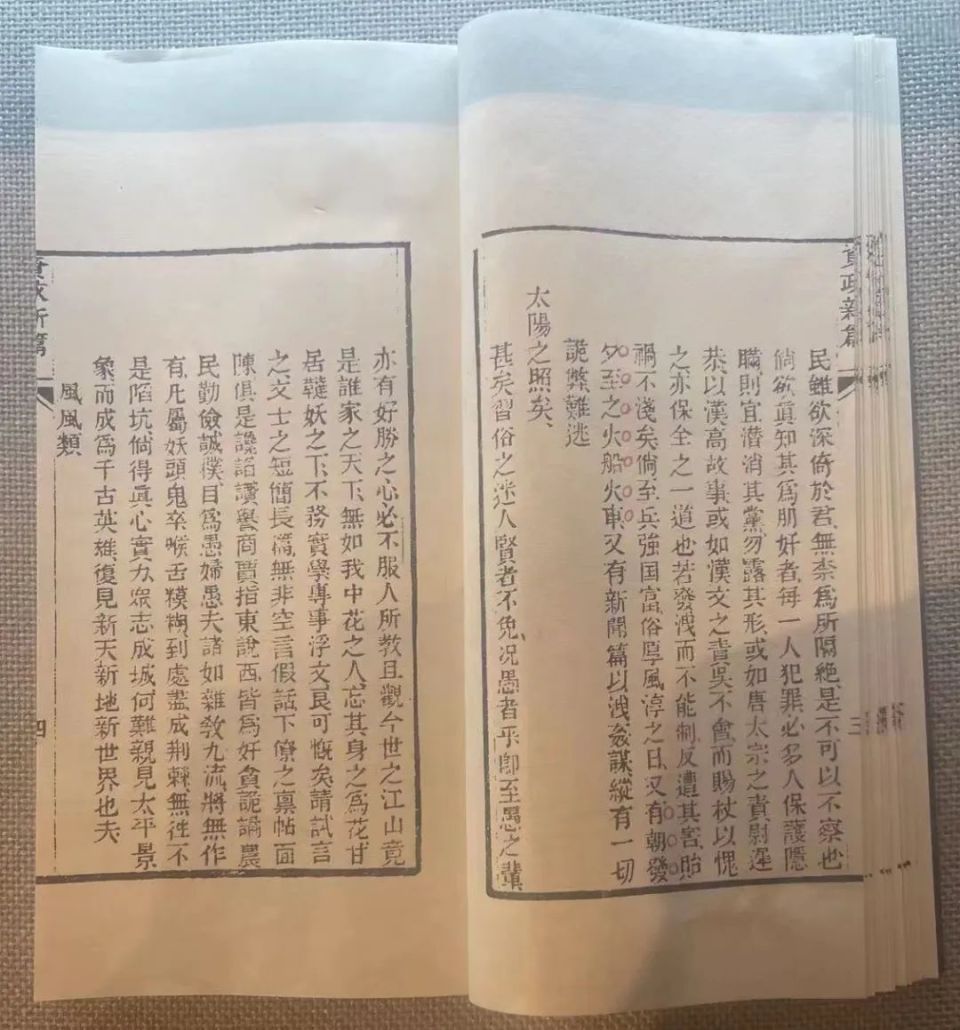 資政新篇
三
民雖欲深倚於君、無柰爲所隔絕、是不可以不察也、
倘欲眞知其爲朋奸者、每一人犯罪、必多人保護隱
瞞、則宜潛消其黨、勿露其形、或如唐太宗之責尉遲
恭、以漢高故事、或如漢文之責吳不會、而賜杖以愧
之、亦保全之一道也、若發洩而不能制、反遭其害、貽
禍不淺矣、倘至兵強国富、俗厚風淳之日、又有朝發
夕至之火船火車、又有新聞篇以洩姦謀、縱有一切
詭弊、難逃
太陽之照矣、
甚矣習俗之迷人、賢者不免、况愚者乎、卽至愚之輩、
亦有好勝之心、必不服人所教、且觀今世之江山、竟
是誰家之天下、無如我中花之人、忘其身之爲花、甘
居韃妖之下、不務實學、專事浮文、良可慨矣、請試言
之、文士之短簡長篇、無非空言假話、下僚之禀帖面
陳、俱是讒謟讚譽、商賈指東說西、皆爲奸貪詭譎、農
民勤儉誠樸、目爲愚婦愚夫、諸如雜教九流、將無作
有、凡屬妖頭鬼卒、喉舌糢糊、到處盡成荊棘、無徃不
是陷坑、倘得眞心實力、衆志成城、何難親見太平景
象、而成爲千古英雄、復見新天新地新世界也夫、
風風類
資政新篇
四